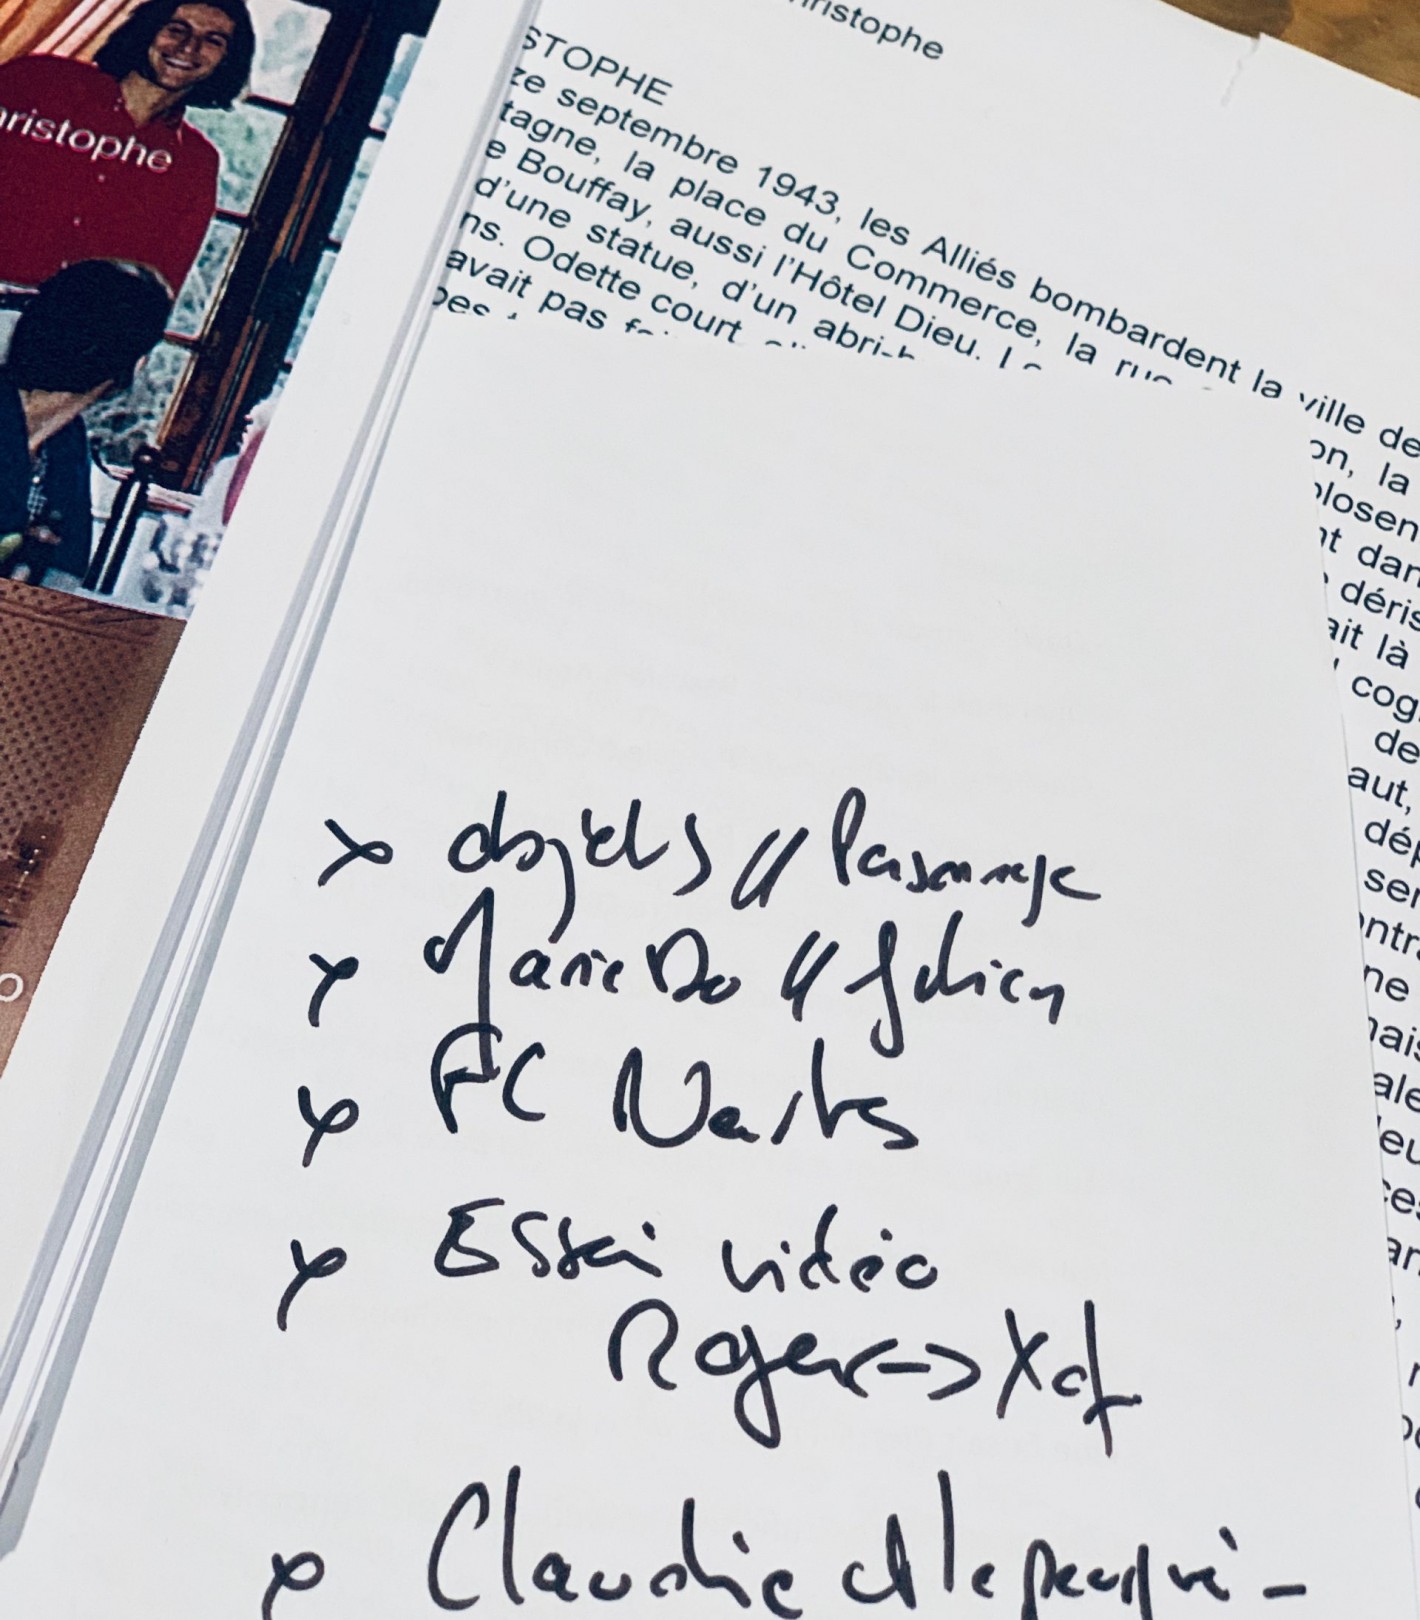 ristophe
ristophe
STOPHE
ze septembre 1943, les Alliés bombardent la ville de
tagne, la place du Commerce, la rue on, la
e Bouffay, aussi l'Hôtel Dieu. plosen
d'une statue, d'un abri nt dan
ns. Odette court déris
avait pas ait là
cog
de
aut,
dép
ser
ntra
ne
mais
ale
eu
ces
an
x objets // Personnage
x Marie Do // Julien
x FC Nantes
x Essai vidéo
Roger <-> Xof
x Claudie et le pourquoi -